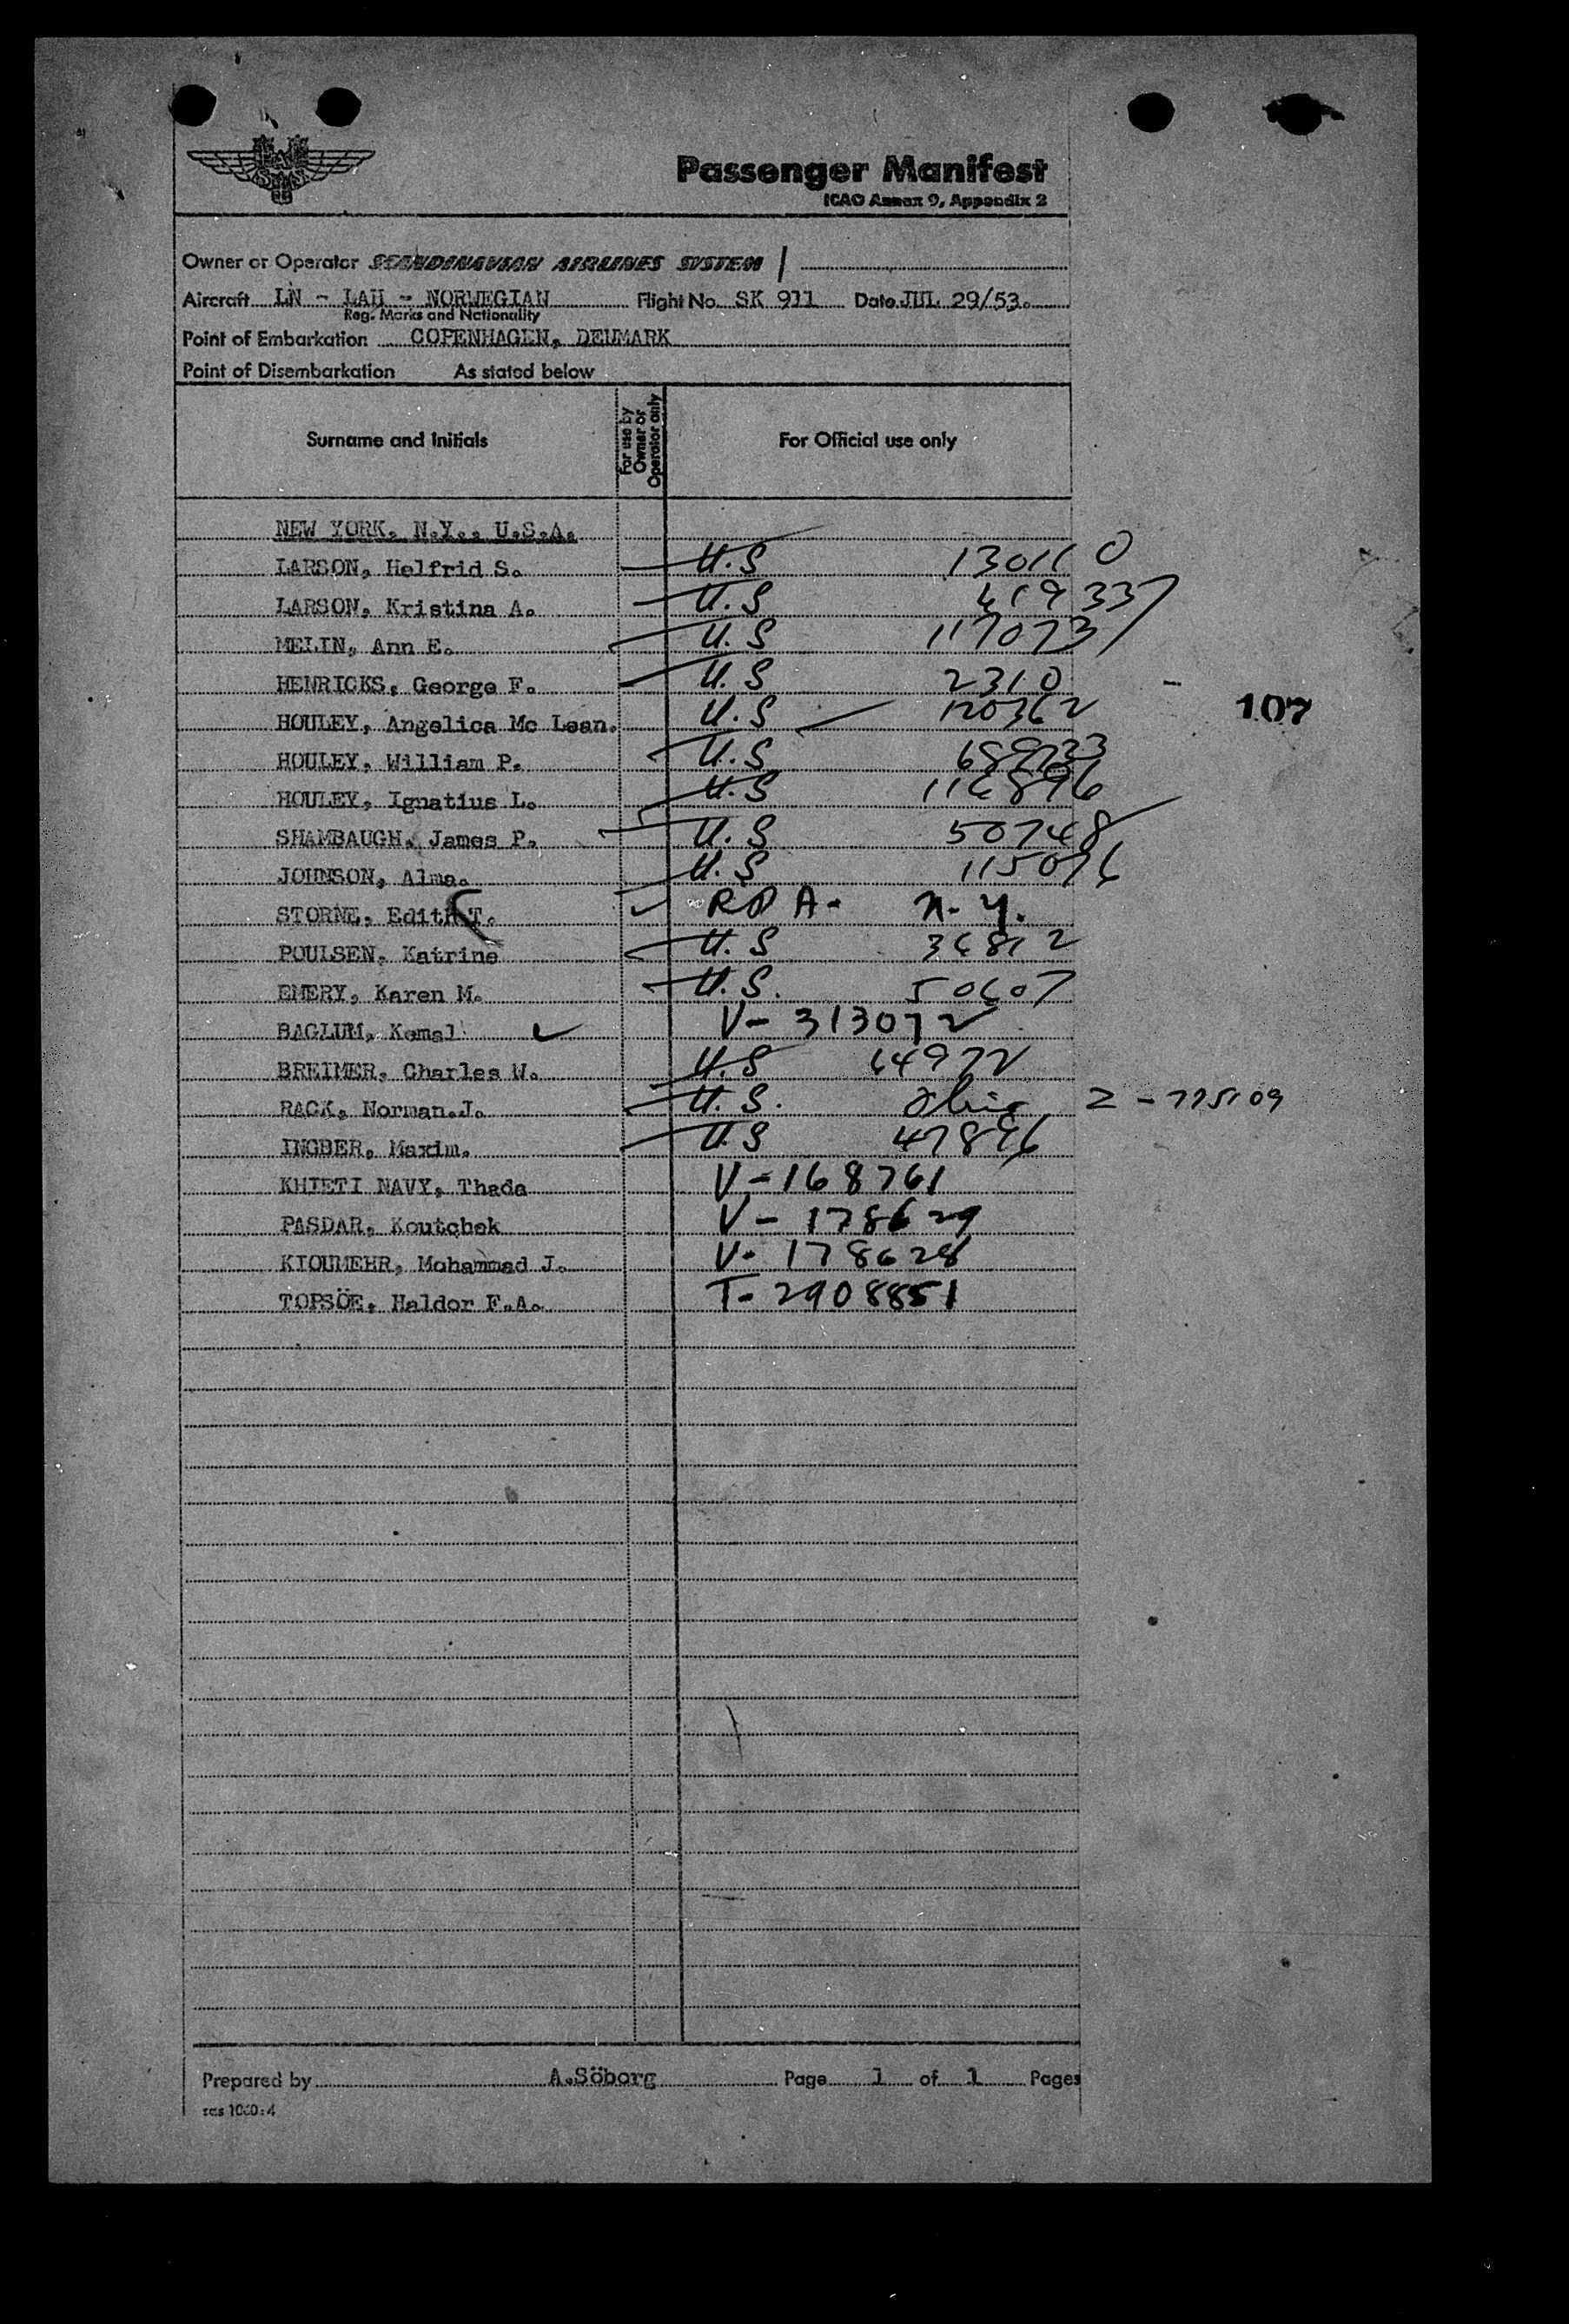 SAS
Passenger Manifest
ICAO Annex 9, Appendix 2
Owner or Operator SCANDINAVIAN AIRLINES SYSTEM /
Aircraft LN - LAU - NORWEGIAN Flight No. SK 911 Date JUL 29/53.
Reg. Marks and Nationality
Point of Embarkation COPENHAGEN, DENMARK
Point of Disembarkation As stated below
Surname and Initials For use by Owner or Operator only For Official use only
NEW YORK, N.Y., U.S.A.
LARSON, Helfrid S. U.S 130110
LARSON, Kristina A. U.S 61933
MELIN, Ann E. U.S 117073
HENRICKS, George F. U.S 2310
107
HOULEY, Angelica Mc Lean. U.S 120362
HOULEY, William P. U.S
HOULEY, Ignatius L. U.S 116896
SHAMBAUGH, James P. U.S 50748
JOHNSON, Alma. U.S 115076
STORNE, Edith T. R P A. N.Y.
POULSEN, Katrine U.S 36812
EMERY, Karen M. U.S. 50607
BAGLUM, Kemal V- 313072
BREIMER, Charles W. U.S 64972
RACK, Norman.J. U.S. Ohio Z - 775109
INGBER, Maxim. U.S 47896
KHIETI NAVY, Thada V-168761
PASDAR, Koutchek V- 178629
KIOUMEHR, Mohammad J. V- 178628
TOPSÖE, Haldor F.A. T- 2908851
Prepared by A.Söborg Page 1 of 1 Pages